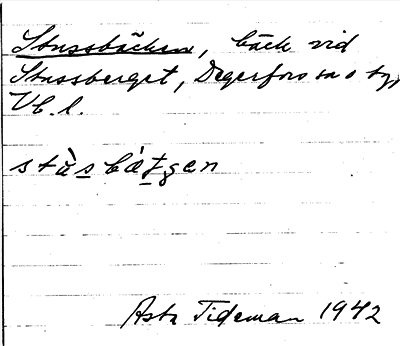 Stussbäcken, bäck vid
Stussberget, Degerfors sn o
Vb. l.
Asta Tideman 1942